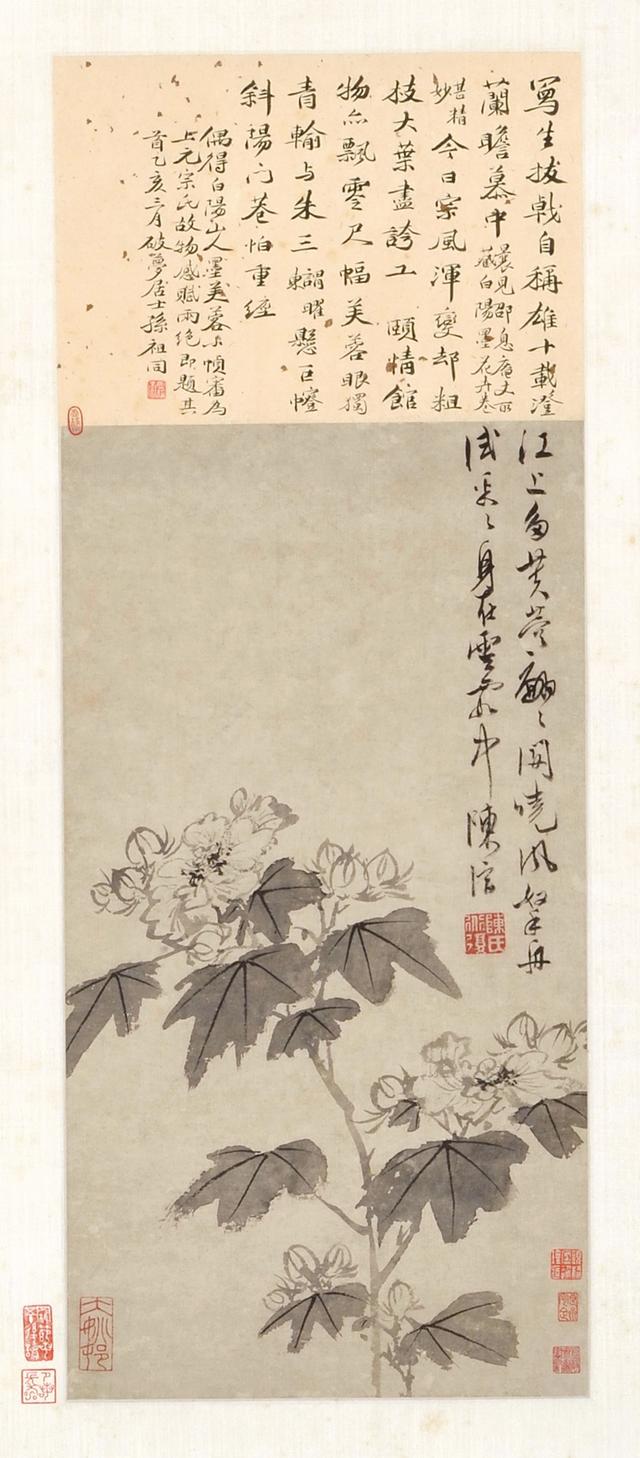 寫生拔戟自稱雄十載澄
蘭瞻慕中
曩見邵息庵丈所
藏白陽墨花卉卷
甚精
妙
今日宗風渾變却粗
枝大葉盡誇工 頤情館
物亦飄零尺幅芙蓉眼獨
青輸與朱三 曜懸巨幢
斜陽門巷怕重經
偶得白陽山人墨芙蓉小幀審為
上元宗氏故物感賦兩絕即題其
首乙亥三月破夢居士孫祖同
江上多芙蓉翩〻開曉風拏舟
試采〻身在雲霞中 陳淳
陳氏